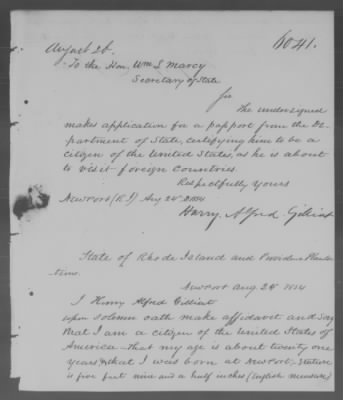 August 26.
6041.
To the Hon. Wm L Marcy
Secretary of State
Sir
The undersigned
makes application for a passport from the De-
partment of State, certifying him to be a
citizen of the United States, as he is about
to visit foreign countries.
Respectfully yours
Newport (R.I) Aug 24th 1854
Harry Alfred Gilliat
State of Rhode Island and Providence Planta
tions.
Newport Aug 24th 1854
I Henry Alfred Gilliat
upon solemn oath make affidavit and say
that I am a citizen of the United States of
America - that my age is about twenty one
years & that I was born at Newport - Stature
is five feet nine and a half inches (English measure)